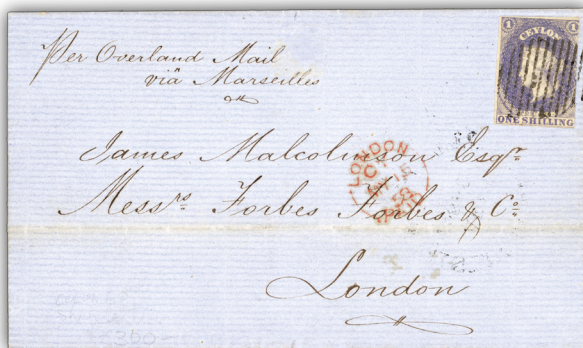 Per Overland Mail
viä Marseilles
1 CEYLON 1
ONE SHILLING
James Malcolmson Esqr
Messrs Forbes Forbes & Co
LONDON
58
PAID
London
360